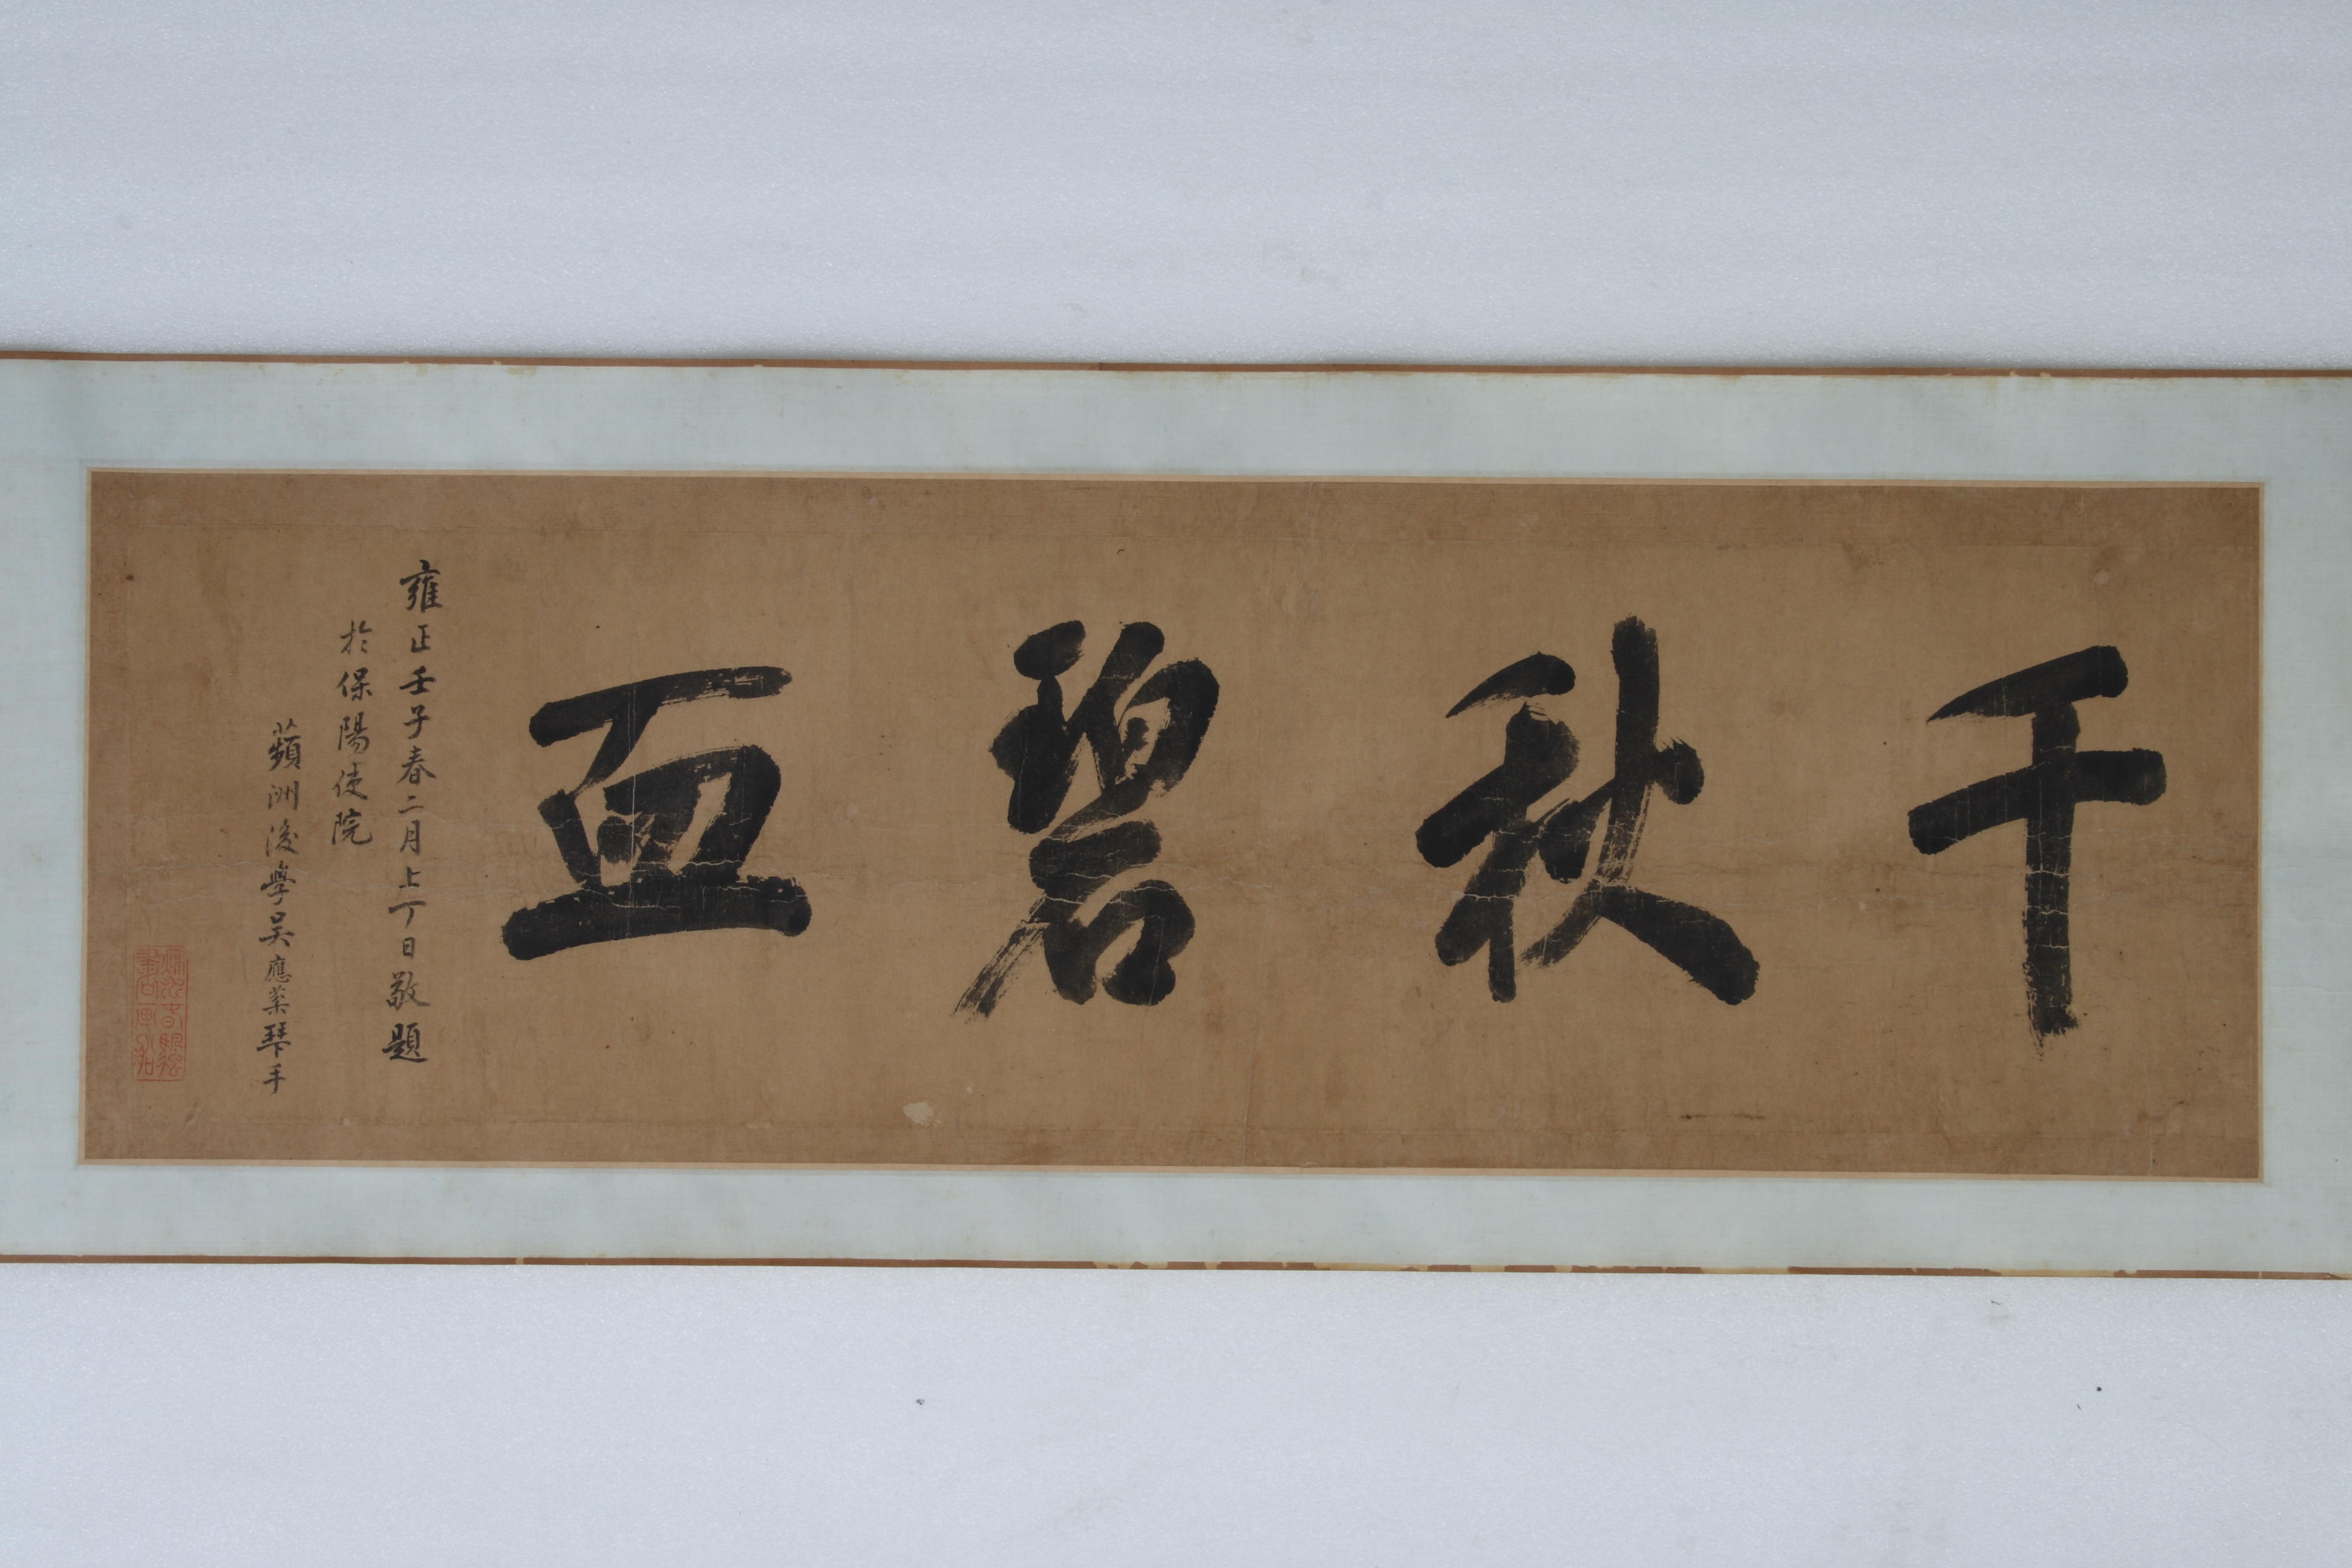 千秋碧血
雍正壬子春二月上丁日敬題
於保陽使院
蘋洲後學吳應棻拜手